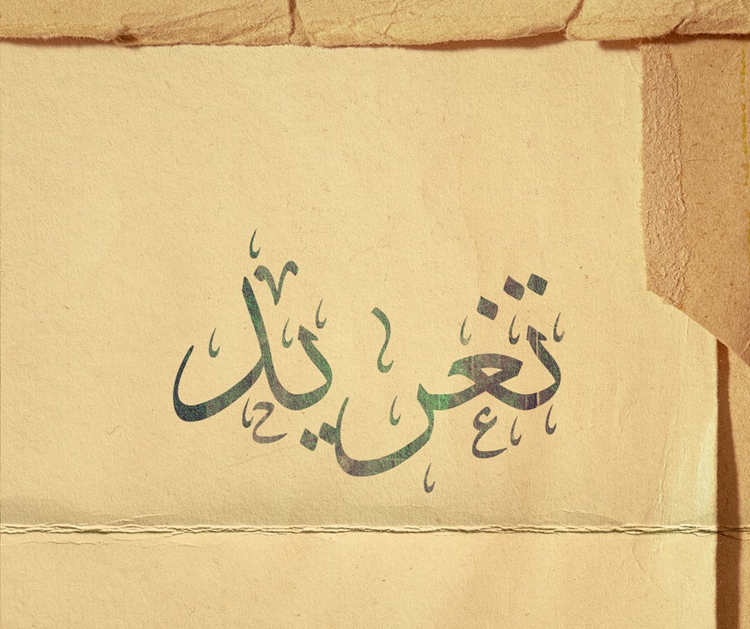 تغريد